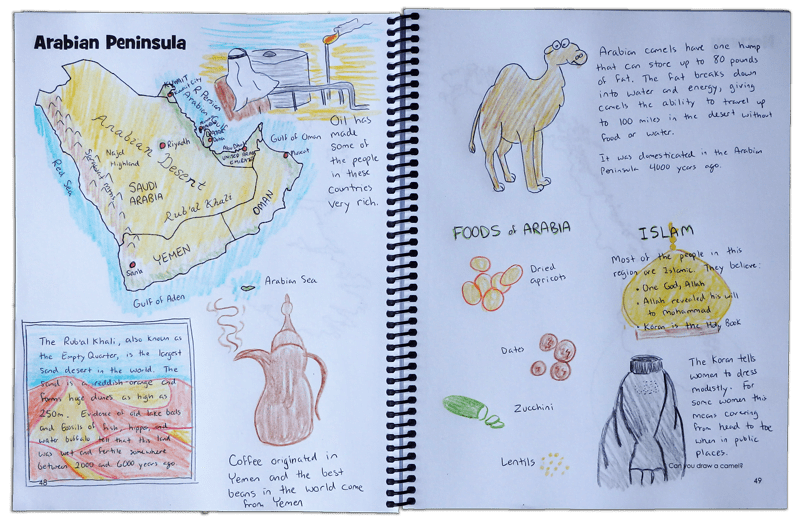 Arabian Peninsula
KUWAIT
Kuwait City
Persian
Arabian Gulf
Gulf of Oman
Riyadh
Abu Dhabi
UNITED ARAB
EMIRATES
Muscat
Arabian Desert
Najd
Highland
Red Sea
SAUDI
ARABIA
Rub'al Khali
OMAN
YEMEN
Sana
Gulf of Aden
Arabian Sea
Oil has
made
some of
the people
in these
countries
very rich.
The Rub'al Khali, also known as
the Empty Quarter, is the largest
sand desert in the world. The
sand is a reddish-orange and
forms huge dunes as high as
250m. Evidence of old lake beds
and fossils of fish, hippos, and
water buffalo tell that this land
was wet and fertile somewhere
between 2000 and 6000 years ago.
48
Coffee originated in
Yemen and the best
beans in the world come
from Yemen
Arabian camels have one hump
that can store up to 80 pounds
of fat. The fat breaks down
into water and energy, giving
camels the ability to travel up
to 100 miles in the desert without
food or water.
It was domesticated in the Arabian
Peninsula 4000 years ago.
FOODS of ARABIA
Dried
apricots
Dates
Zucchini
Lentils
ISLAM
Most of the people in this
region are Islamic. They believe:
• One God, Allah
• Allah revealed his will
to Mohammad
• Koran is the Holy Book
The Koran tells
women to dress
modestly. For
some women this
means covering
from head to toe
when in public
places.
Can you draw a camel?
49